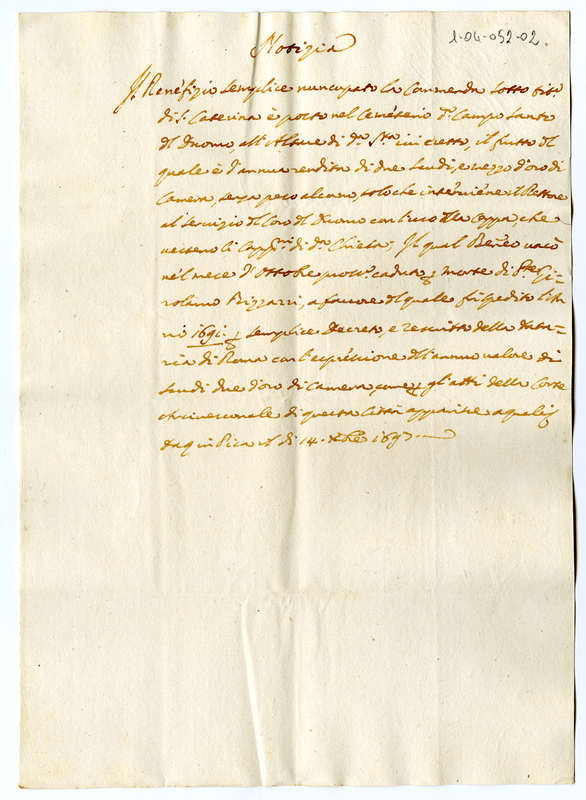 1-04-052-02.
Notizia
Il Benefizio semplice nuncupato la Commenda sotto tito.
di S. Caterina è posto nel Cemeterio d.o Campo Santo
del Duomo, all'Altare di d.a S.ta ivi eretto, il frutto del
quale è d'annua rendita di due scudi, e mezzo d'oro di
Camera, senza peso alcuno, solo che interviene il Rettore
al servizio del Coro del Duomo con l'uso della Cappa, che
vestono li Capp.ni di d.a Chiesa; Il qual Ben.o vacò
nel mese d'Ottobre pross.o caduto morte di Gi=
rolamo Bizzarri, a favore del quale fù spedito
1691. semplice Decreto, e rescritto della data=
ria di Roma con l'espressione dell'annuo valore di
scudi due d'oro di Camera, come gl'atti della Corte
Arcivescovale di questa Città apparisce
in Pisa il di 14. Xbre 1697.